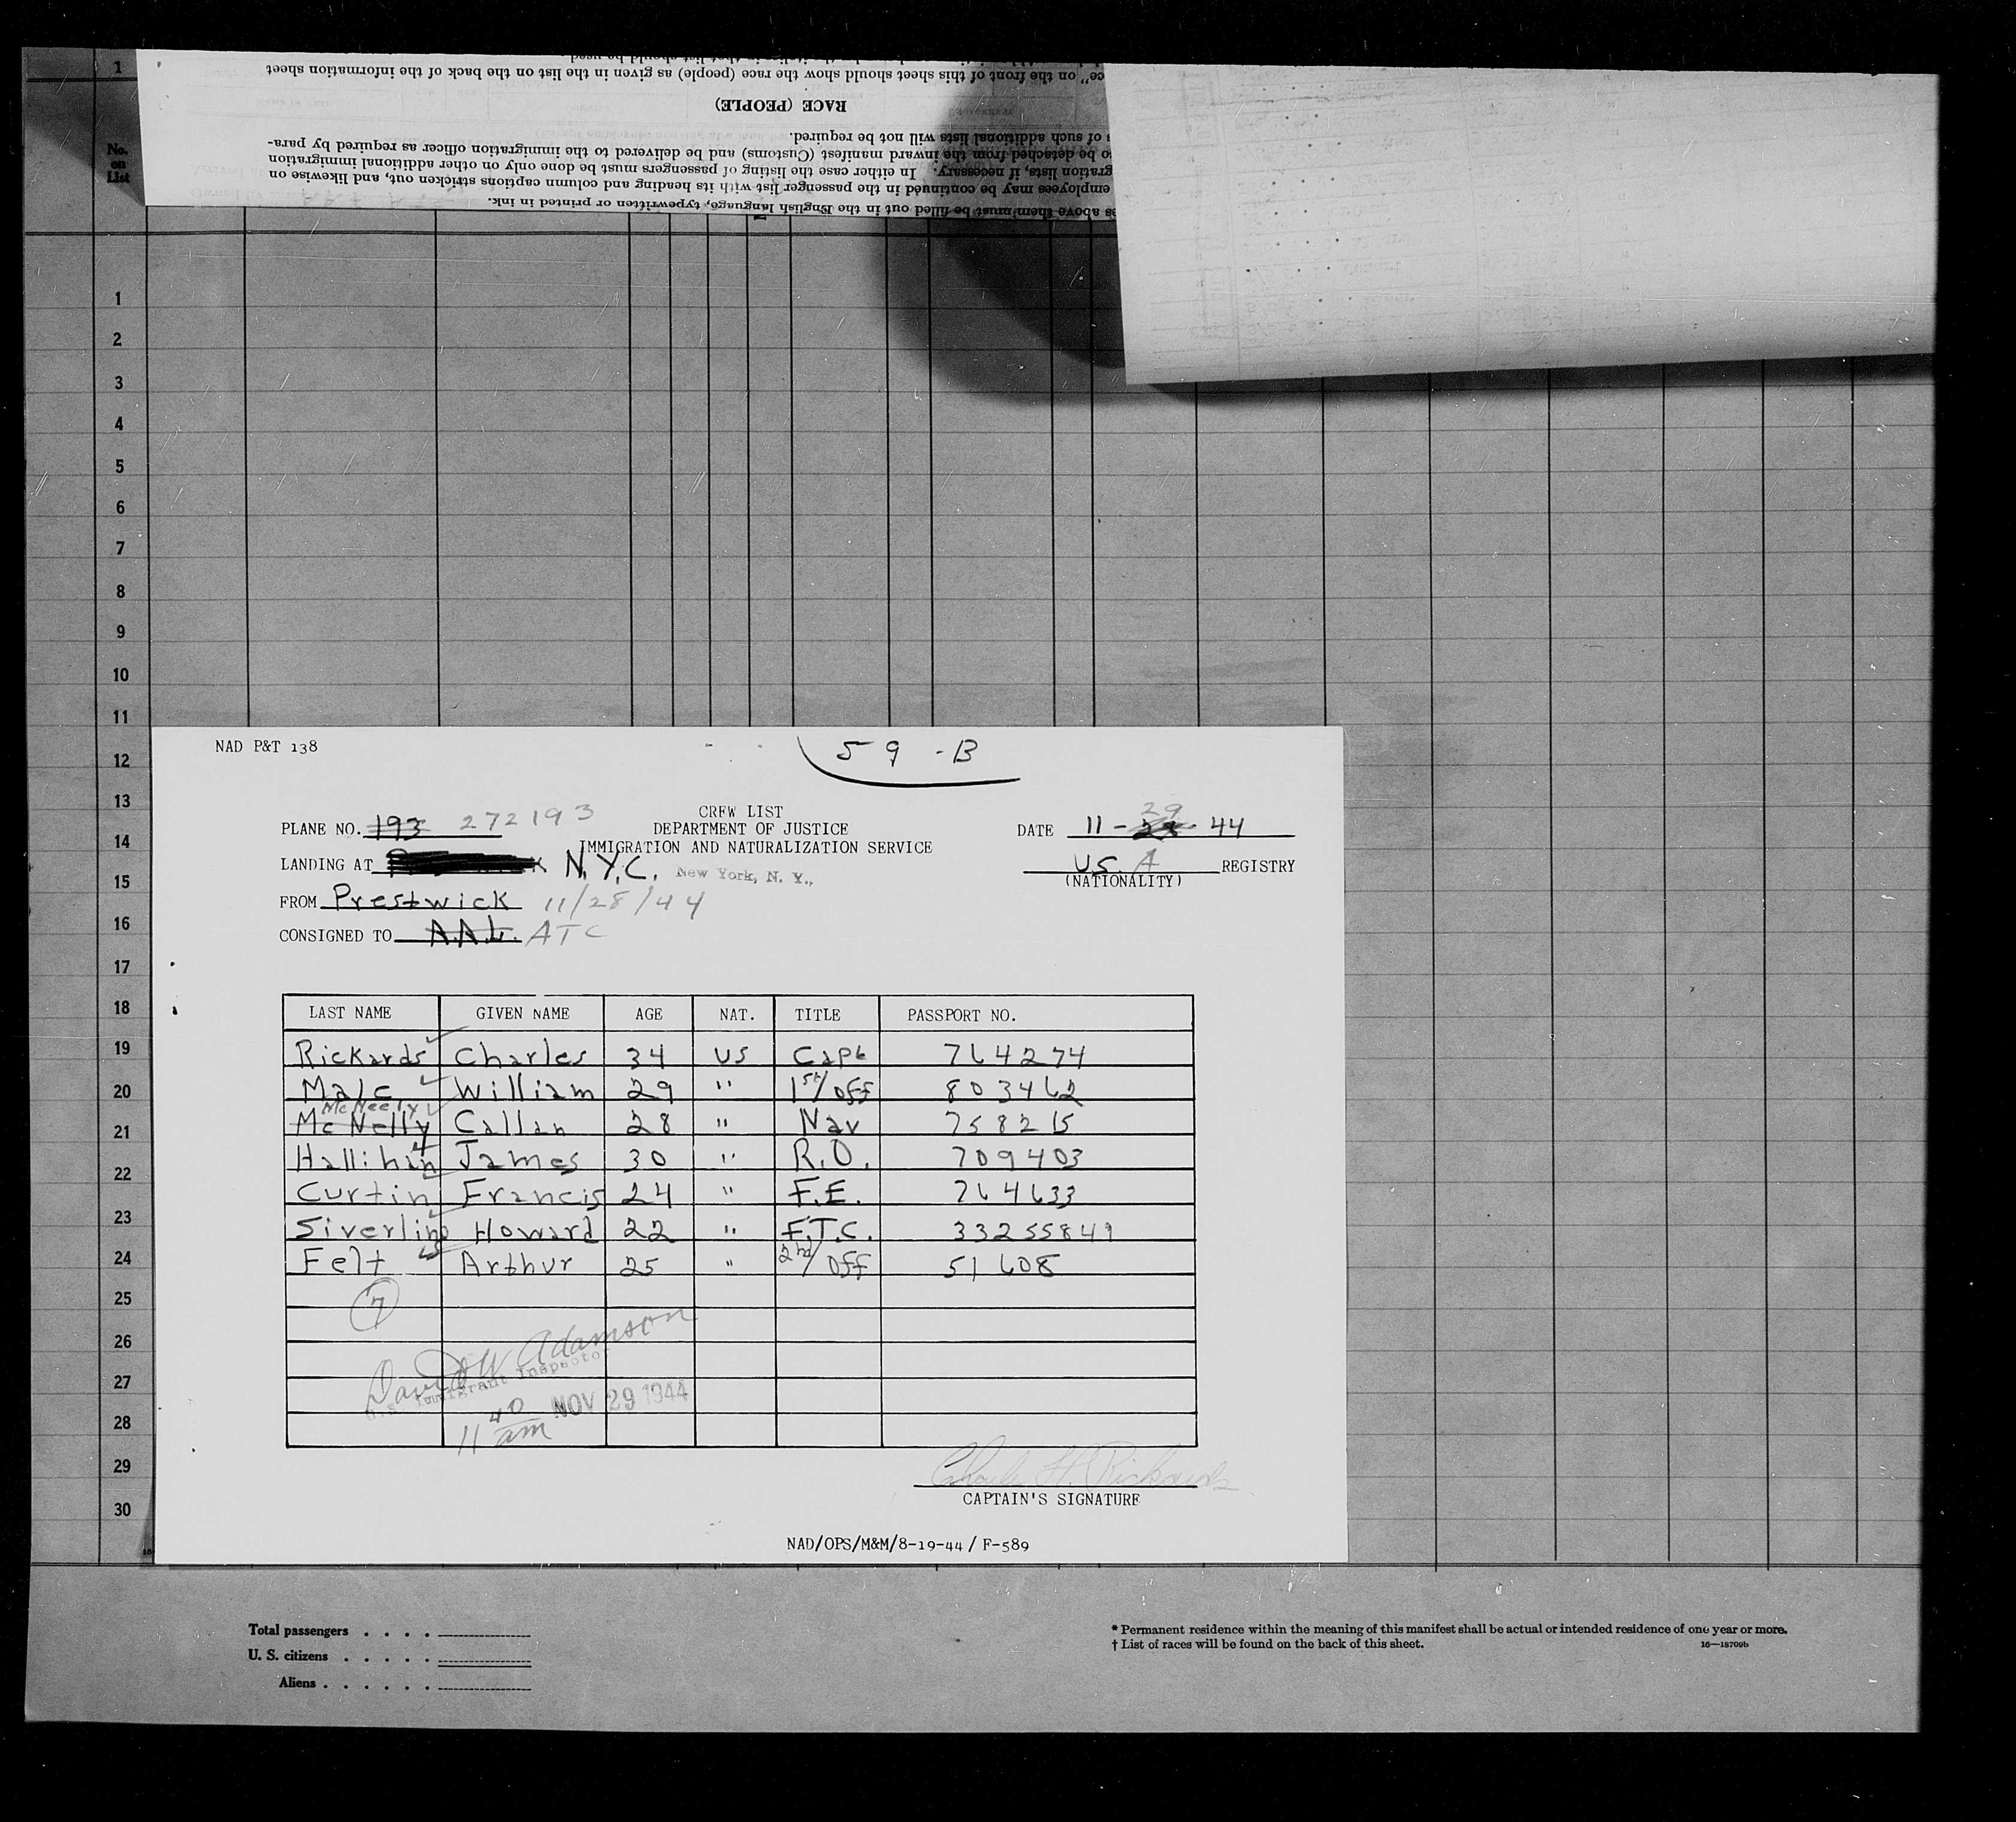 1
ce" on the front of this sheet should show the race (people) as given in the list on the back of the information sheet
RACE (PEOPLE)
s of such additional lists will not be required.
to be detached from the inward manifest (Customs) and be delivered to the immigration officer as required by para-
gration lists, if necessary. In either case the listing of passengers must be done only on other additional immigration
employees may be continued in the passenger list with its heading and column captions stricken out, and likewise on
es above them must be filled out in the English language, typewritten or printed in ink.
No.
on
List
1
2
3
4
5
6
7
8
9
10
11
12
13
14
15
16
17
18
19
20
21
22
23
24
25
26
27
28
29
30
NAD P&T 138
59-B
CREW LIST
DEPARTMENT OF JUSTICE
IMMIGRATION AND NATURALIZATION SERVICE
PLANE NO. 193 272193
DATE 11-29-44
LANDING AT N.Y.C. New York, N. Y.,
U.S. A REGISTRY
(NATIONALITY)
FROM Prestwick 11/28/44
CONSIGNED TO A.A.L. ATC
LAST NAME GIVEN NAME AGE NAT. TITLE PASSPORT NO.
Rickards Charles 34 US Capt 764274
Malc William 29 " 1st/Off 803462
McNeely
McNelly Callan 28 " Nav 758215
Hallihan James 30 " R.O. 709403
Curtin Francis 24 " F.E. 764633
Siverling Howard 22 " F.T.C. 33255841
Felt Arthur 25 " 2nd/Off 51608
7
David W Adamson
U.S. Immigrant Inspector
11 40 am NOV 29 1944
Charles H. Rickards
CAPTAIN'S SIGNATURE
NAD/OPS/M&M/8-19-44 / F-589
Total passengers . . . .
U. S. citizens . . . . .
Aliens . . . . . .
* Permanent residence within the meaning of this manifest shall be actual or intended residence of one year or more.
† List of races will be found on the back of this sheet.
16—18709b